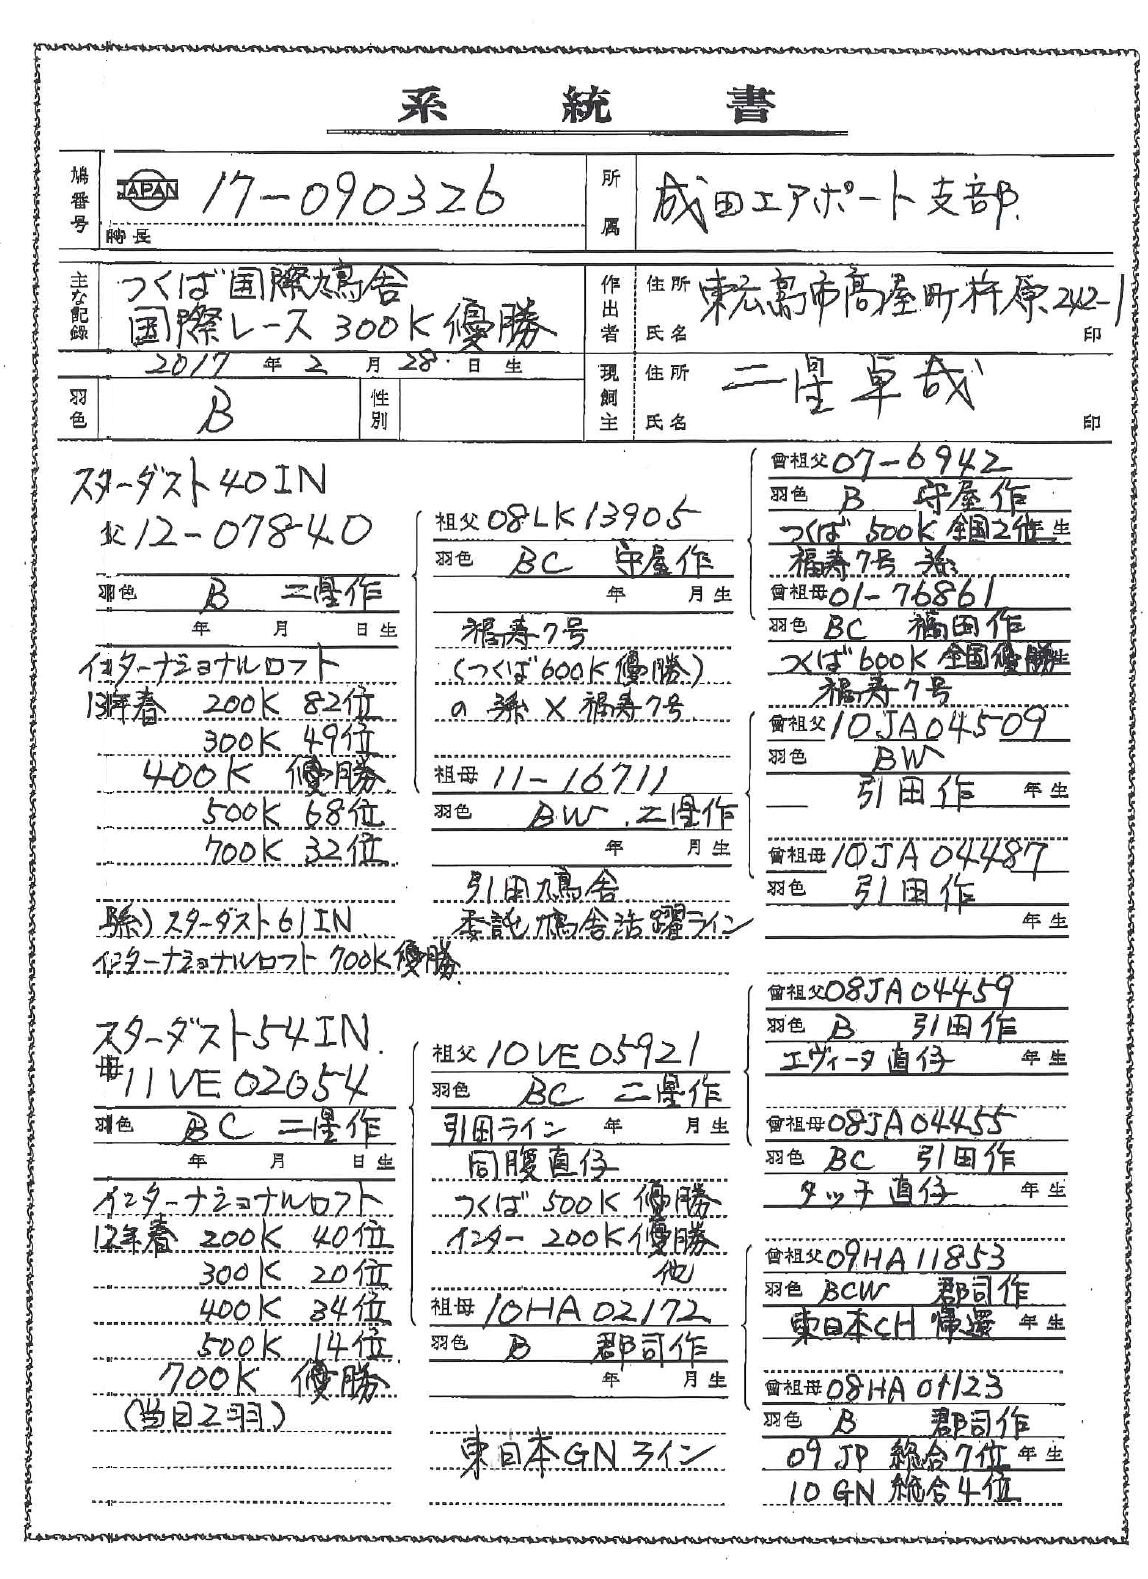 系統書
鳩番号 JAPAN 17-090326
脚長
所属 成田エアポート支部
主な記録 つくば国際鳩舎
国際レース 300K 優勝
作出者 住所 東広島市高屋町杵原242-1
氏名 印
2017年2月28日生
羽色 B 性別
現飼主 住所 二星卓哉
氏名 印
スターダスト40IN
父12-07840
羽色 B 二星作
年 月 日生
インターナショナルロフト
13年春 200K 82位
300K 49位
400K 優勝
500K 68位
700K 32位
孫)スターダスト61IN
インターナショナルロフト700K優勝
祖父08LK13905
羽色 BC 守屋作
年 月生
福寿7号
(つくば600K優勝)
の孫×福寿7号
祖母11-16711
羽色 BW 二星作
年 月生
引田鳩舎
委託鳩舎活躍ライン
曾祖父07-6942
羽色 B 守屋作
つくば500K全国2位 年生
福寿7号孫
曾祖母01-76861
羽色 BC 福田作
つくば600K全国優勝 年生
福寿7号
曾祖父10JA04509
羽色 BW
引田作 年生
曾祖母10JA04487
羽色 引田作
年生
スターダスト54IN
母11VE02054
羽色 BC 二星作
年 月 日生
インターナショナルロフト
12年春 200K 40位
300K 20位
400K 34位
500K 14位
700K 優勝
(当日2羽)
祖父10VE05921
羽色 BC 二星作
引田ライン 年 月生
同腹直仔
つくば500K優勝
インター200K優勝
他
祖母10HA02172
羽色 B 郡司作
年 月生
東日本GNライン
曾祖父08JA04459
羽色 B 引田作
エヴィータ直仔 年生
曾祖母08JA04455
羽色 BC 引田作
タッチ直仔 年生
曾祖父09HA11853
羽色 BCW 郡司作
東日本CH帰還 年生
曾祖母08HA01123
羽色 B 郡司作
09JP総合7位 年生
10GN総合4位